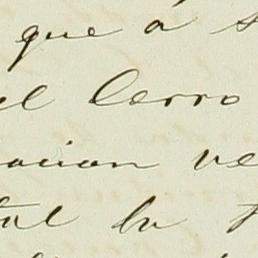 que á s
el Cerro
acion ve
tal la